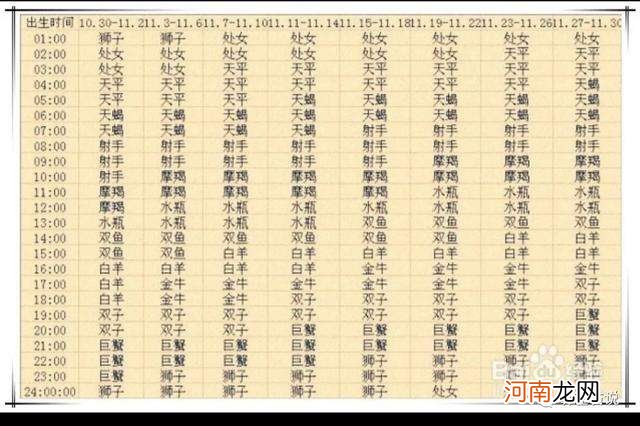 出生时间 10.30-11.2 11.3-11.6 11.7-11.10 11.11-11.14 11.15-11.18 11.19-11.22 11.23-11.26 11.27-11.30
01:00 狮子 狮子 处女 处女 处女 处女 处女 处女
02:00 处女 处女 处女 处女 处女 处女 天平 天平
03:00 处女 处女 天平 天平 天平 天平 天平 天平
04:00 天平 天平 天平 天平 天平 天平 天平 天蝎
05:00 天平 天平 天平 天蝎 天蝎 天蝎 天蝎 天蝎
06:00 天蝎 天蝎 天蝎 天蝎 天蝎 天蝎 天蝎 天蝎
07:00 天蝎 天蝎 天蝎 天蝎 射手 射手 射手 射手
08:00 射手 射手 射手 射手 射手 射手 射手 射手
09:00 射手 射手 射手 射手 射手 摩羯 摩羯 摩羯
10:00 射手 摩羯 摩羯 摩羯 摩羯 摩羯 摩羯 摩羯
11:00 摩羯 摩羯 摩羯 摩羯 摩羯 水瓶 水瓶 水瓶
12:00 摩羯 水瓶 水瓶 水瓶 水瓶 水瓶 水瓶 水瓶
13:00 水瓶 水瓶 水瓶 水瓶 双鱼 双鱼 双鱼 双鱼
14:00 双鱼 双鱼 双鱼 双鱼 双鱼 双鱼 白羊 白羊
15:00 双鱼 双鱼 白羊 白羊 白羊 白羊 白羊 白羊
16:00 白羊 白羊 白羊 白羊 金牛 金牛 金牛 金牛
17:00 白羊 金牛 金牛 金牛 金牛 金牛 金牛 双子
18:00 白羊 金牛 金牛 双子 双子 双子 双子 双子
19:00 双子 双子 双子 双子 双子 双子 双子 巨蟹
20:00 双子 双子 双子 巨蟹 巨蟹 巨蟹 巨蟹 巨蟹
21:00 巨蟹 巨蟹 巨蟹 巨蟹 巨蟹 巨蟹 巨蟹 巨蟹
22:00 巨蟹 巨蟹 巨蟹 巨蟹 狮子 狮子 狮子 狮子
23:00 巨蟹 狮子 狮子 狮子 狮子 狮子 狮子
24:00:00 狮子 狮子 狮子 狮子 狮子 处女
河南龙网